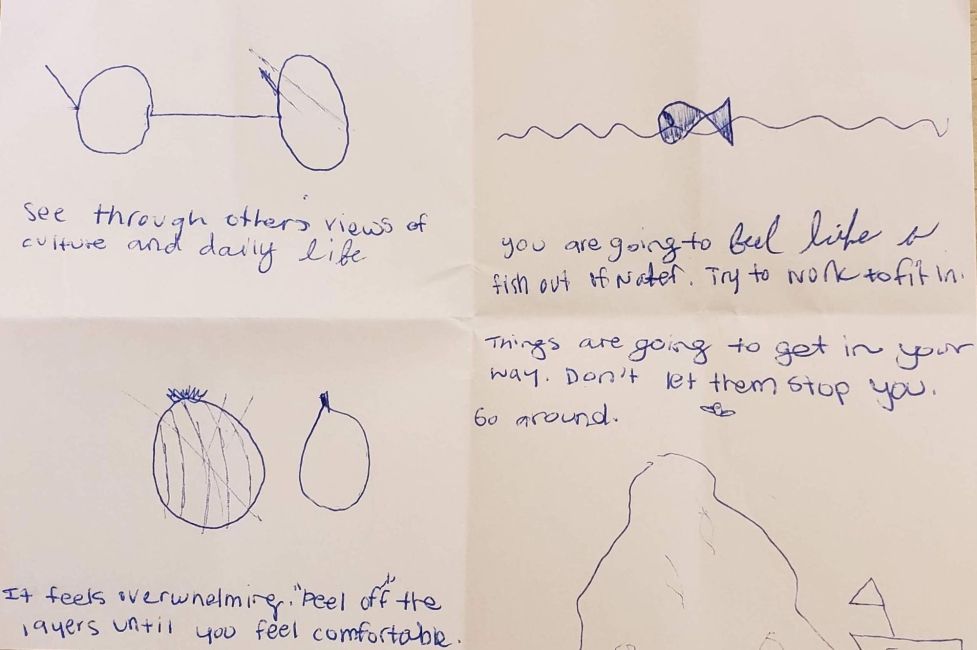 See through others' views of
culture and daily life
you are going to feel like a
fish out of water. Try to work to fit in.
Things are going to get in your
way. Don't let them stop you.
Go around.
It feels overwhelming. "Peel off" the
layers until you feel comfortable.